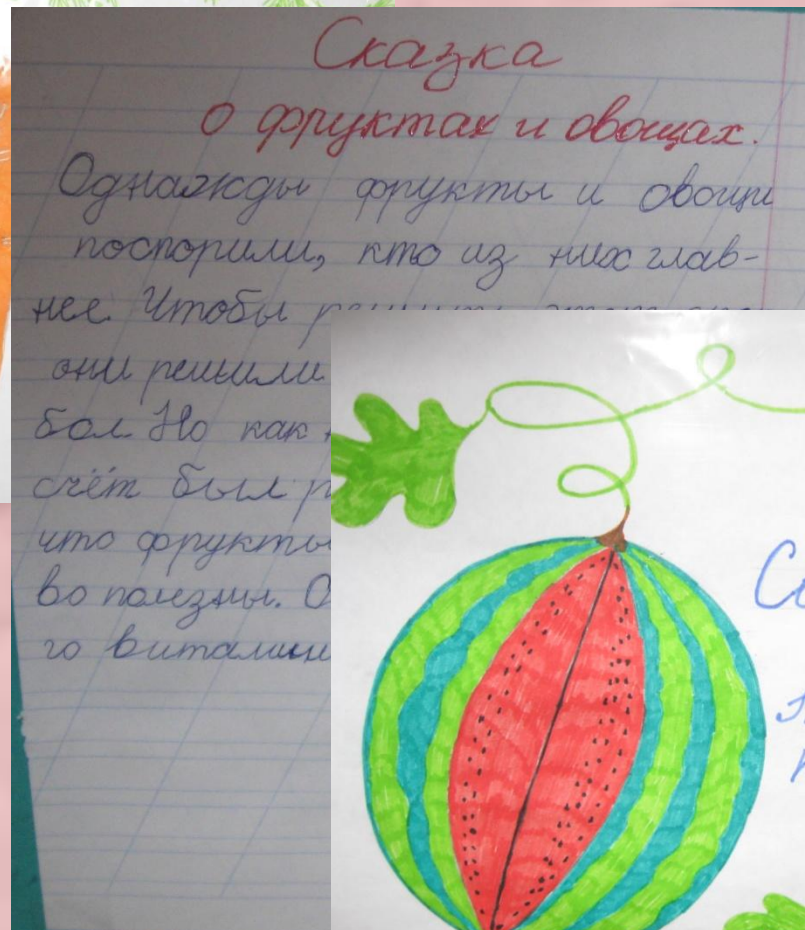 Сказка
о фруктах и овощах.
Однажды фрукты и овощи
поспорили, кто из них глав-
нее. Чтобы
они решили
бол. Но как
счёт был
что фрукты
во полезны.
го витамин